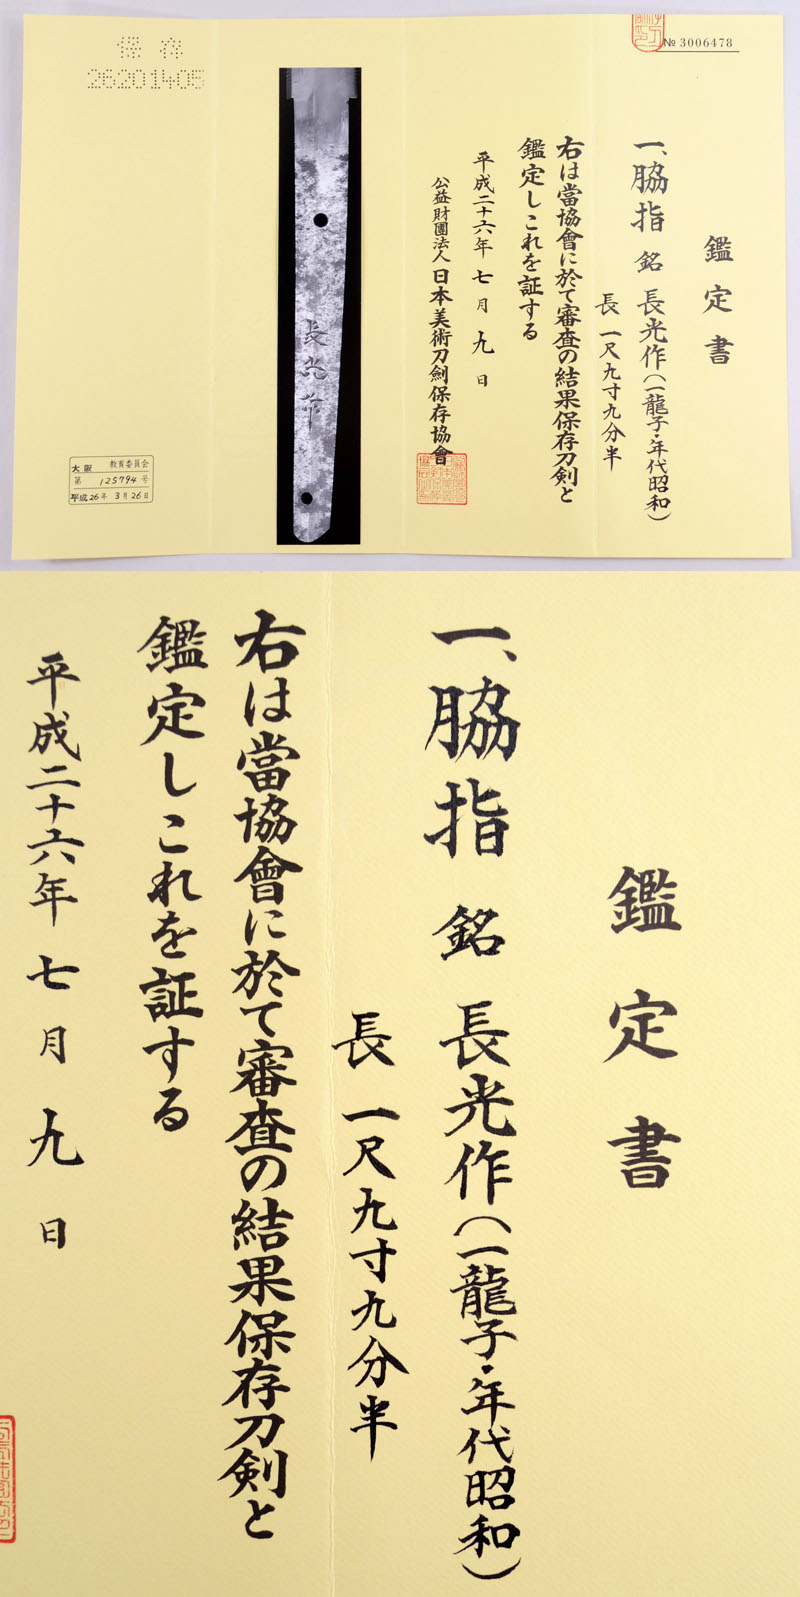 № 3006478
鑑定書
一、脇指 銘 長光作(一龍子・年代昭和)
長 一尺九寸九分半
右は當協會に於て審査の結果保存刀剣と
鑑定しこれを証する
平成二十六年 七月 九日
公益財團法人 日本美術刀劍保存協會
長光作
保存
26201405
大阪 教育委員会
第 125794 号
平成26年 3月26日
鑑定書
一、脇指 銘 長光作(一龍子・年代昭和)
長 一尺九寸九分半
右は當協會に於て審査の結果保存刀剣と
鑑定しこれを証する
平成二十六年 七月 九日